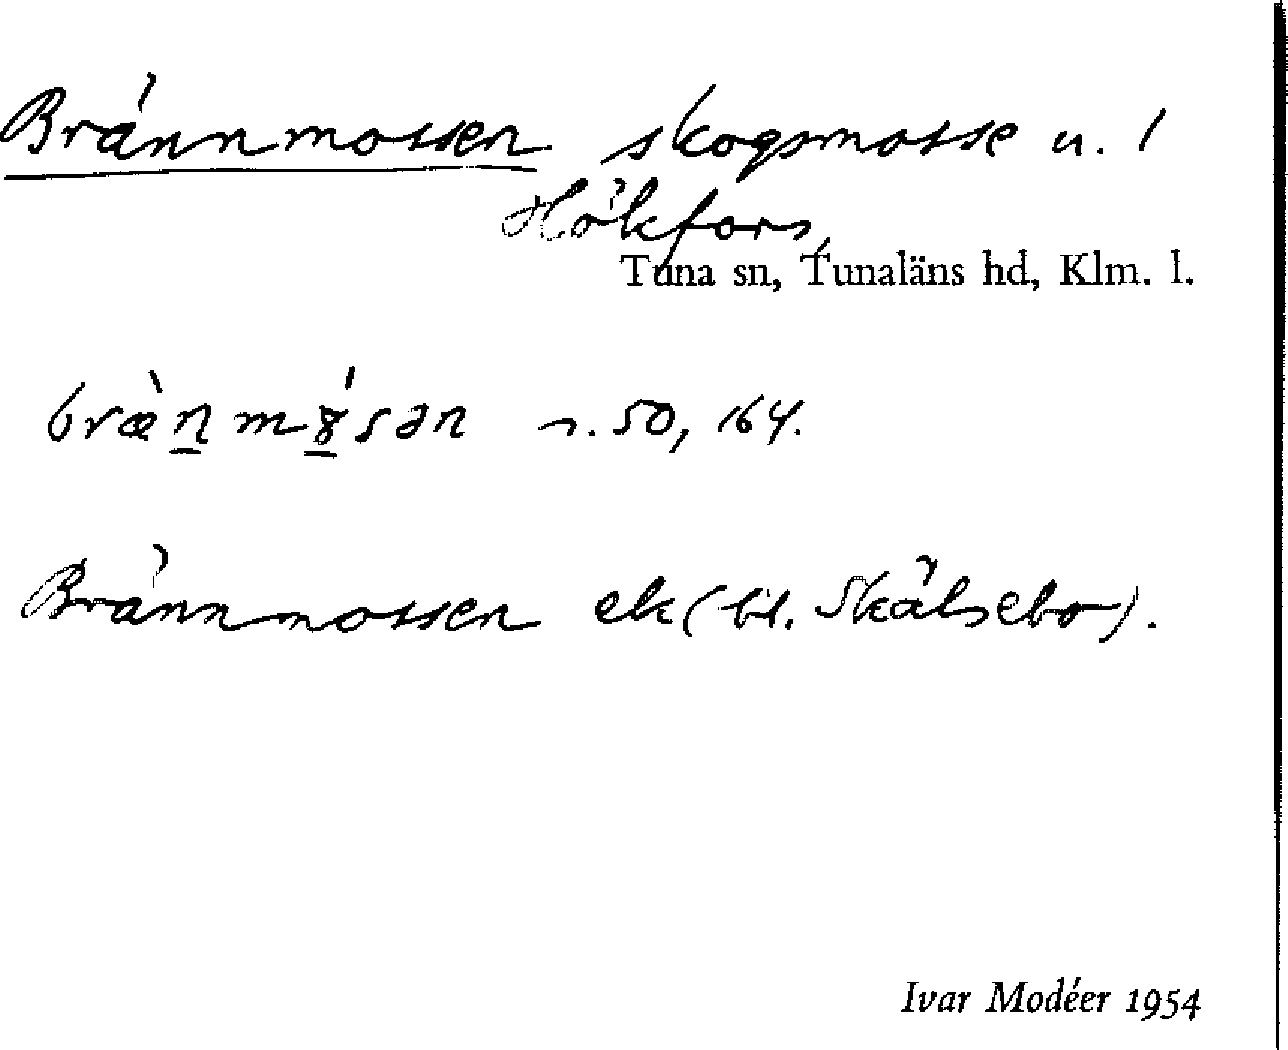 Brännmossen skogsmosse u. 1
Hökfors,
Tuna sn, Tunaläns hd, Klm. l.
bræ̀n̲ mɤ̲́sən n. 50, 164.
Brännmossen ek (bl. Skälsebo).
Ivar Modéer 1954